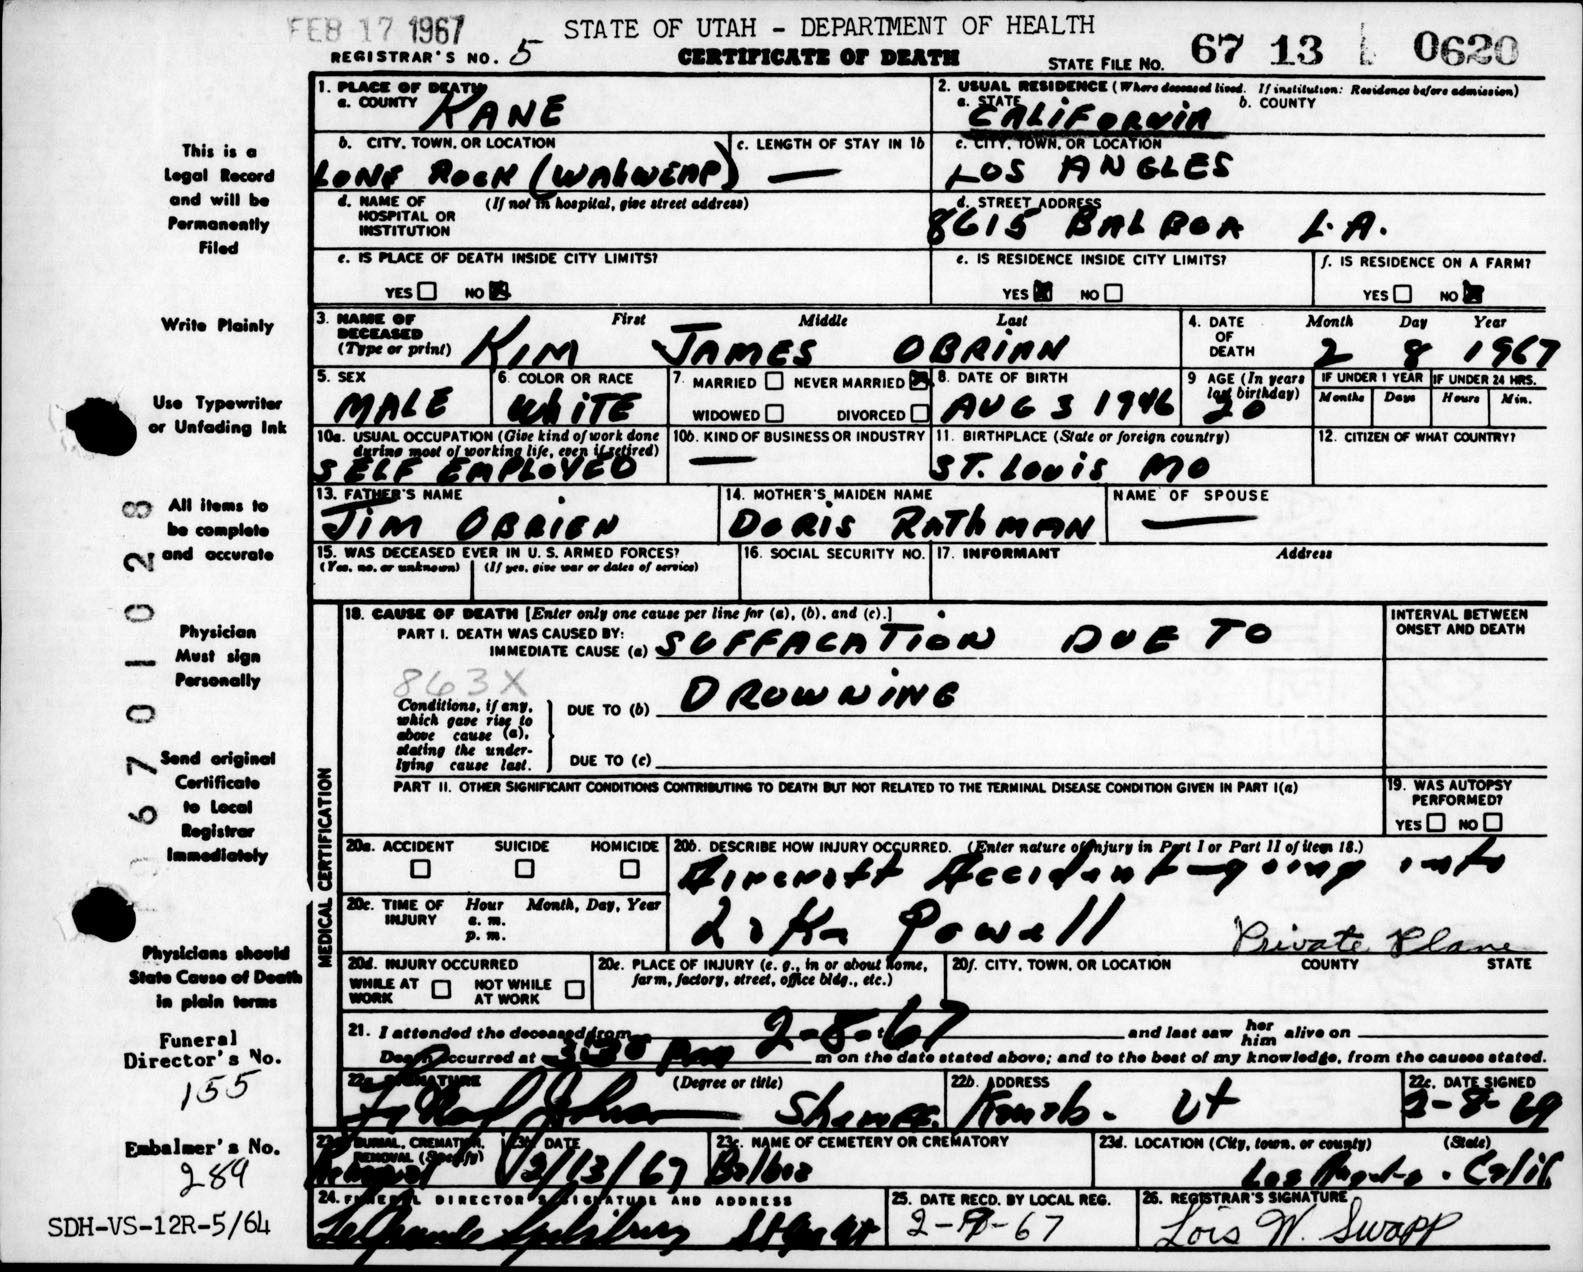 FEB 17 1967
STATE OF UTAH - DEPARTMENT OF HEALTH
REGISTRAR'S NO. 5
CERTIFICATE OF DEATH
STATE FILE NO. 67 13 0620
This is a
Legal Record
and will be
Permanently
Filed
Write Plainly
Use Typewriter
or Unfading Ink
All items to
be complete
and accurate
Physician
Must sign
Personally
Send original
Certificate
to Local
Registrar
Immediately
Physicians should
State Cause of Death
in plain terms
Funeral
Director's No.
155
Embalmer's No.
289
SDH-VS-12R-5/64
0670101028
1. PLACE OF DEATH
a. COUNTY KANE
2. USUAL RESIDENCE (Where deceased lived. If institution: Residence before admission)
a. STATE CALIFORNIA b. COUNTY
b. CITY, TOWN, OR LOCATION
LONE ROCK (WAHWEAP)
c. LENGTH OF STAY IN 1b
—
c. CITY, TOWN, OR LOCATION
LOS ANGLES
d. NAME OF HOSPITAL OR INSTITUTION (If not in hospital, give street address)
d. STREET ADDRESS
8615 BALBOA L.A.
e. IS PLACE OF DEATH INSIDE CITY LIMITS?
YES NO X
e. IS RESIDENCE INSIDE CITY LIMITS?
YES X NO
f. IS RESIDENCE ON A FARM?
YES NO X
3. NAME OF DECEASED (Type or print) First Middle Last
KIM JAMES OBRIAN
4. DATE OF DEATH Month Day Year
2 8 1967
5. SEX
MALE
6. COLOR OR RACE
WHITE
7. MARRIED NEVER MARRIED X
WIDOWED DIVORCED
8. DATE OF BIRTH
AUG 3 1946
9 AGE (In years last birthday)
20
IF UNDER 1 YEAR Months Days
IF UNDER 24 HRS. Hours Min.
10a. USUAL OCCUPATION (Give kind of work done during most of working life, even if retired)
SELF EMPLOYED
10b. KIND OF BUSINESS OR INDUSTRY
—
11. BIRTHPLACE (State or foreign country)
ST. LOUIS MO
12. CITIZEN OF WHAT COUNTRY?
13. FATHER'S NAME
JIM OBRIEN
14. MOTHER'S MAIDEN NAME
DORIS RATHMAN
NAME OF SPOUSE
—
15. WAS DECEASED EVER IN U. S. ARMED FORCES?
(Yes, no, or unknown) (If yes, give war or dates of service)
16. SOCIAL SECURITY NO.
17. INFORMANT Address
MEDICAL CERTIFICATION
18. CAUSE OF DEATH [Enter only one cause per line for (a), (b), and (c).]
INTERVAL BETWEEN ONSET AND DEATH
PART I. DEATH WAS CAUSED BY:
IMMEDIATE CAUSE (a) SUFFACATION DUE TO
863X
Conditions, if any, which gave rise to above cause (a), stating the underlying cause last.
DUE TO (b) DROWNING
DUE TO (c)
PART II. OTHER SIGNIFICANT CONDITIONS CONTRIBUTING TO DEATH BUT NOT RELATED TO THE TERMINAL DISEASE CONDITION GIVEN IN PART I(a)
19. WAS AUTOPSY PERFORMED?
YES NO
20a. ACCIDENT SUICIDE HOMICIDE
20b. DESCRIBE HOW INJURY OCCURRED. (Enter nature of injury in Part I or Part II of item 18.)
Aircraft Accident - going into
Lake Powell
Private Plane
20c. TIME OF INJURY Hour Month, Day, Year
a. m.
p. m.
20d. INJURY OCCURRED
WHILE AT WORK NOT WHILE AT WORK
20e. PLACE OF INJURY (e. g., in or about home, farm, factory, street, office bldg., etc.)
20f. CITY, TOWN, OR LOCATION COUNTY STATE
21. I attended the deceased from 2-8-67 and last saw her him alive on
Death occurred at 3:30 PM m on the date stated above; and to the best of my knowledge, from the causes stated.
22a. SIGNATURE (Degree or title)
22b. ADDRESS
Kanab. Ut
22c. DATE SIGNED
2-8-69
23a. BURIAL, CREMATION, REMOVAL (Specify)
Removal
23b. DATE
2/13/67
23c. NAME OF CEMETERY OR CREMATORY
23d. LOCATION (City, town, or county) (State)
Los Angeles. Calif
24. FUNERAL DIRECTOR'S SIGNATURE AND ADDRESS
25. DATE RECD. BY LOCAL REG.
26. REGISTRAR'S SIGNATURE
Lois W. Swapp